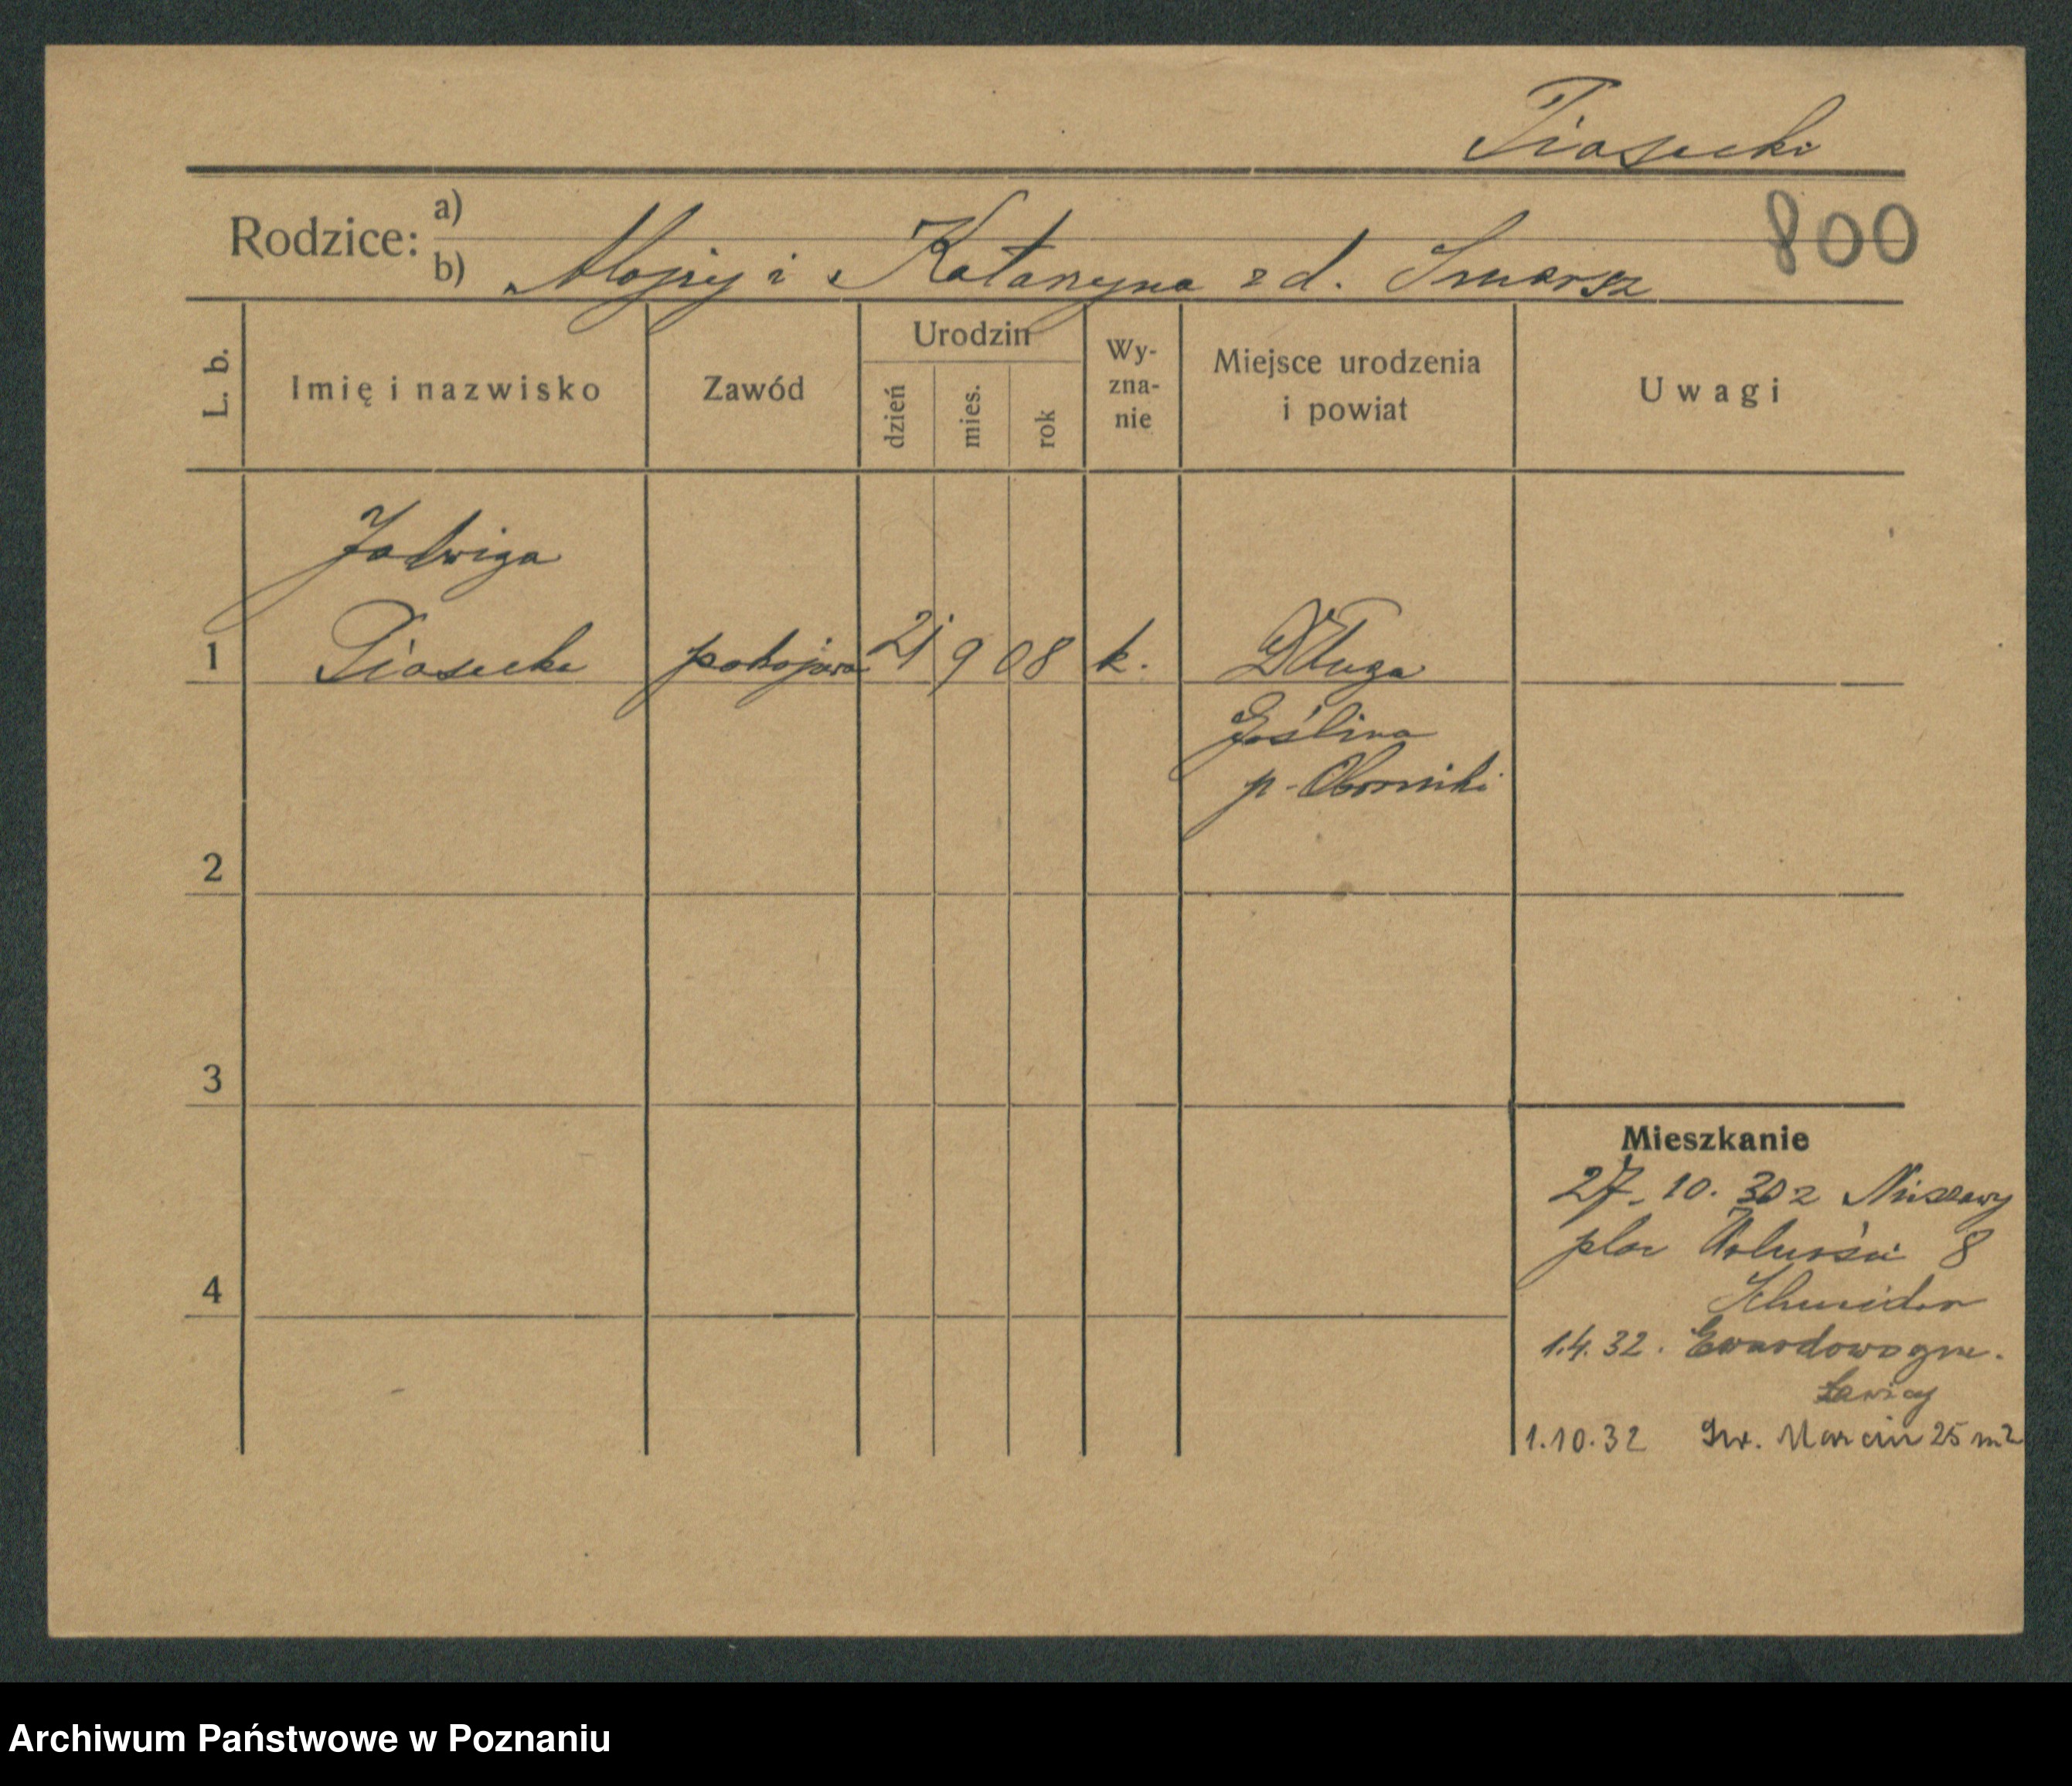 Piasecki
Rodzice: a)
b) Alojzy i Katarzyna z d. Smarsz
800
L. b.
Imię i nazwisko
Zawód
Urodzin
dzień
mies.
rok
Wy-
zna-
nie
Miejsce urodzenia
i powiat
Uwagi
Jadwiga
1 Piasecka pokojowa 21 9 08 k. Długa
Goślina
p. Oborniki
2
3
4
Mieszkanie
27. 10. 30 z
plac Wolności 8
Schneider
1.4.32.
Ławicy
1.10.32 Św. Marcin 25 m 2
Archiwum Państwowe w Poznaniu